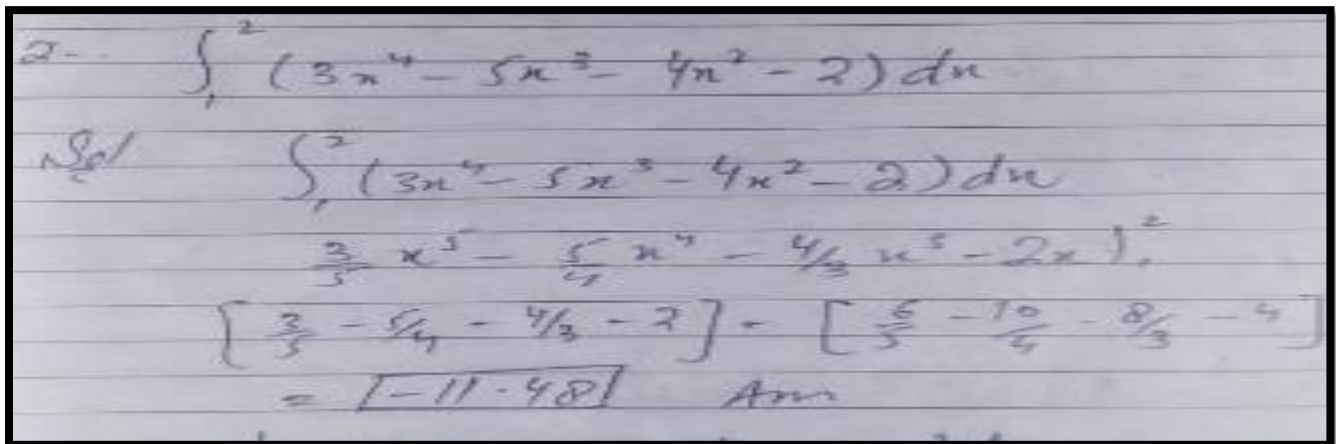 2-- ∫₁² (3x⁴ - 5x³ - 4x² - 2) dx
Sol ∫₁² (3x⁴ - 5x³ - 4x² - 2) dx
3/5 x⁵ - 5/4 x⁴ - 4/3 x³ - 2x )₁²
[ 3/5 - 5/4 - 4/3 - 2 ] - [ 6/5 - 10/4 - 8/3 - 4 ]
= -11.48 Ans